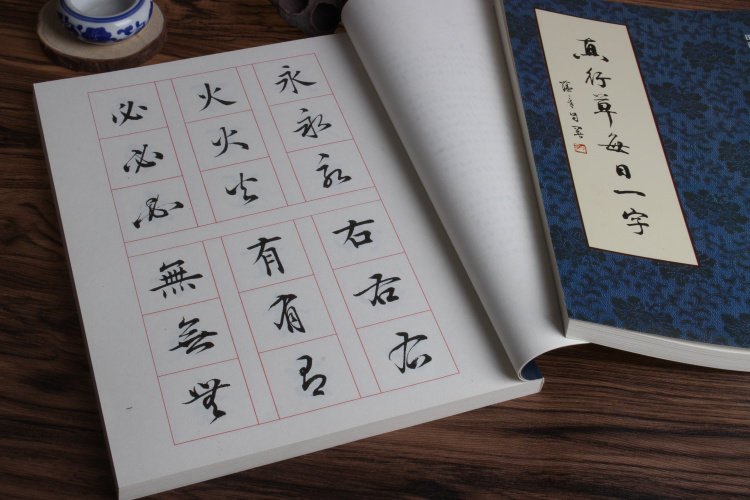 永永永
火火火
必必必
右右右
有有有
無無無
真行草每日一字